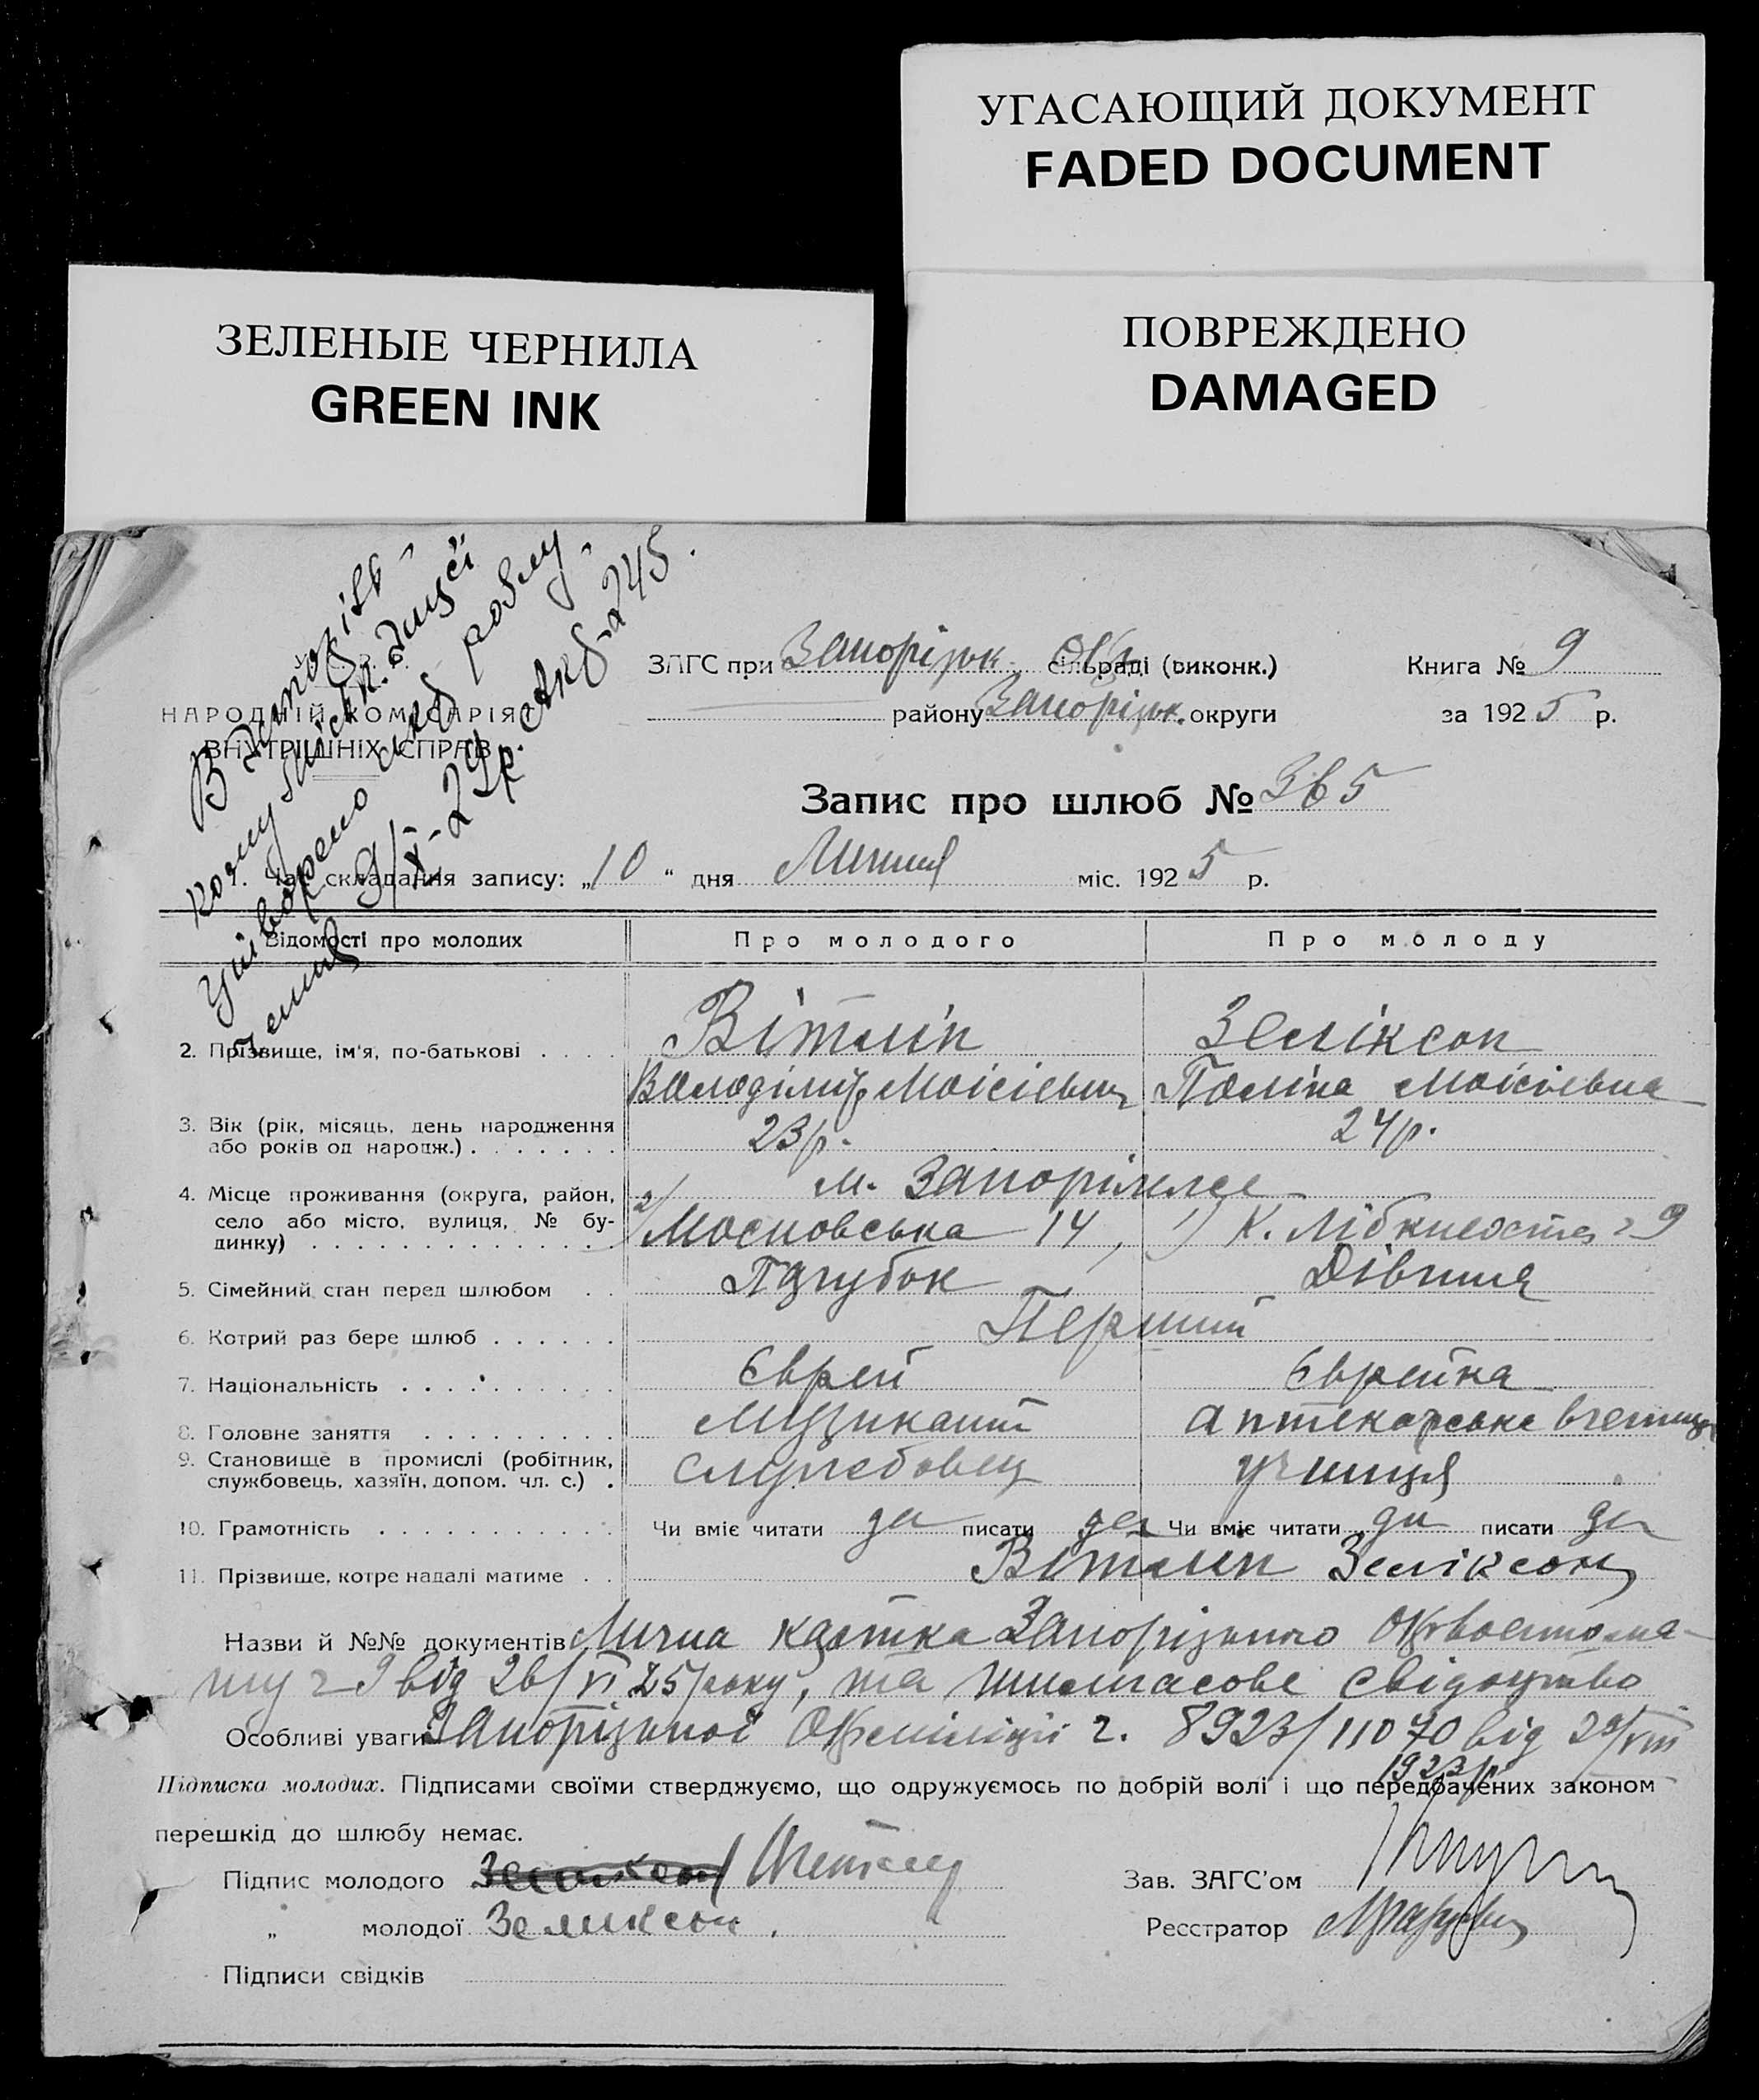 УГАСАЮЩИЙ ДОКУМЕНТ
FADED DOCUMENT
ЗЕЛЕНЫЕ ЧЕРНИЛА
GREEN INK
ПОВРЕЖДЕНО
DAMAGED
В Запоріз-
кому
9/X-29р. Акт 245.
НАРОДНІЙ КОМІСАРІЯТ
ВНУТРІШНІХ СПРАВ
ЗАГС при Запорізьк. Окр. сільраді (виконк.) Книга № 9
району Запорізьк. округи за 1925 р.
Запис про шлюб № 365
1. Час складання запису: „10“ дня Липня міс. 1925 р.
Відомості про молодих Про молодого Про молоду
2. Прізвище, ім'я, по-батькові . . . . Вітлін Зеліксон
Володімір Моісієвич Поліна Моісієвна
3. Вік (рік, місяць, день народження 23 р. 24 р.
або років од народж.) . . . . . . .
4. Місце проживання (округа, район, м. Запоріжжє
село або місто, вулиця, № бу- 2/ Московська 14, 1) К. Лібкнехта 29
динку) . . . . . . . . . . . . . .
5. Сімейний стан перед шлюбом . . Парубок Дівчина
6. Котрий раз бере шлюб . . . . . . Перший
7. Національність . . . . . . . . . . Єврей Єврейка
8. Головне заняття . . . . . . . . . Музикант аптекарська
9. Становище в промислі (робітник,
службовець, хазяїн, допом. чл. с.) . Службовец учениця
10. Грамотність . . . . . . . . . . . Чи вміє читати да писати да Чи вміє читати да писати да
11. Прізвище, котре надалі матиме . . Вітлін Зеліксон
Назви й №№ документів Лична картка Запорізького Окрвоенкома-
ту 29 від 26/VI 25/року, та тимчасове свідоцтво
Особливі уваги Запорізької Окрміліції ч. 8923/11070 від 29/VIII
1923 р.
Підписка молодих. Підписами своїми стверджуємо, що одружуємось по добрій волі і що передбачених законом
перешкід до шлюбу немає.
Підпис молодого Зав. ЗАГС'ом
„ молодої Зеликсон. Реєстратор
Підписи свідків